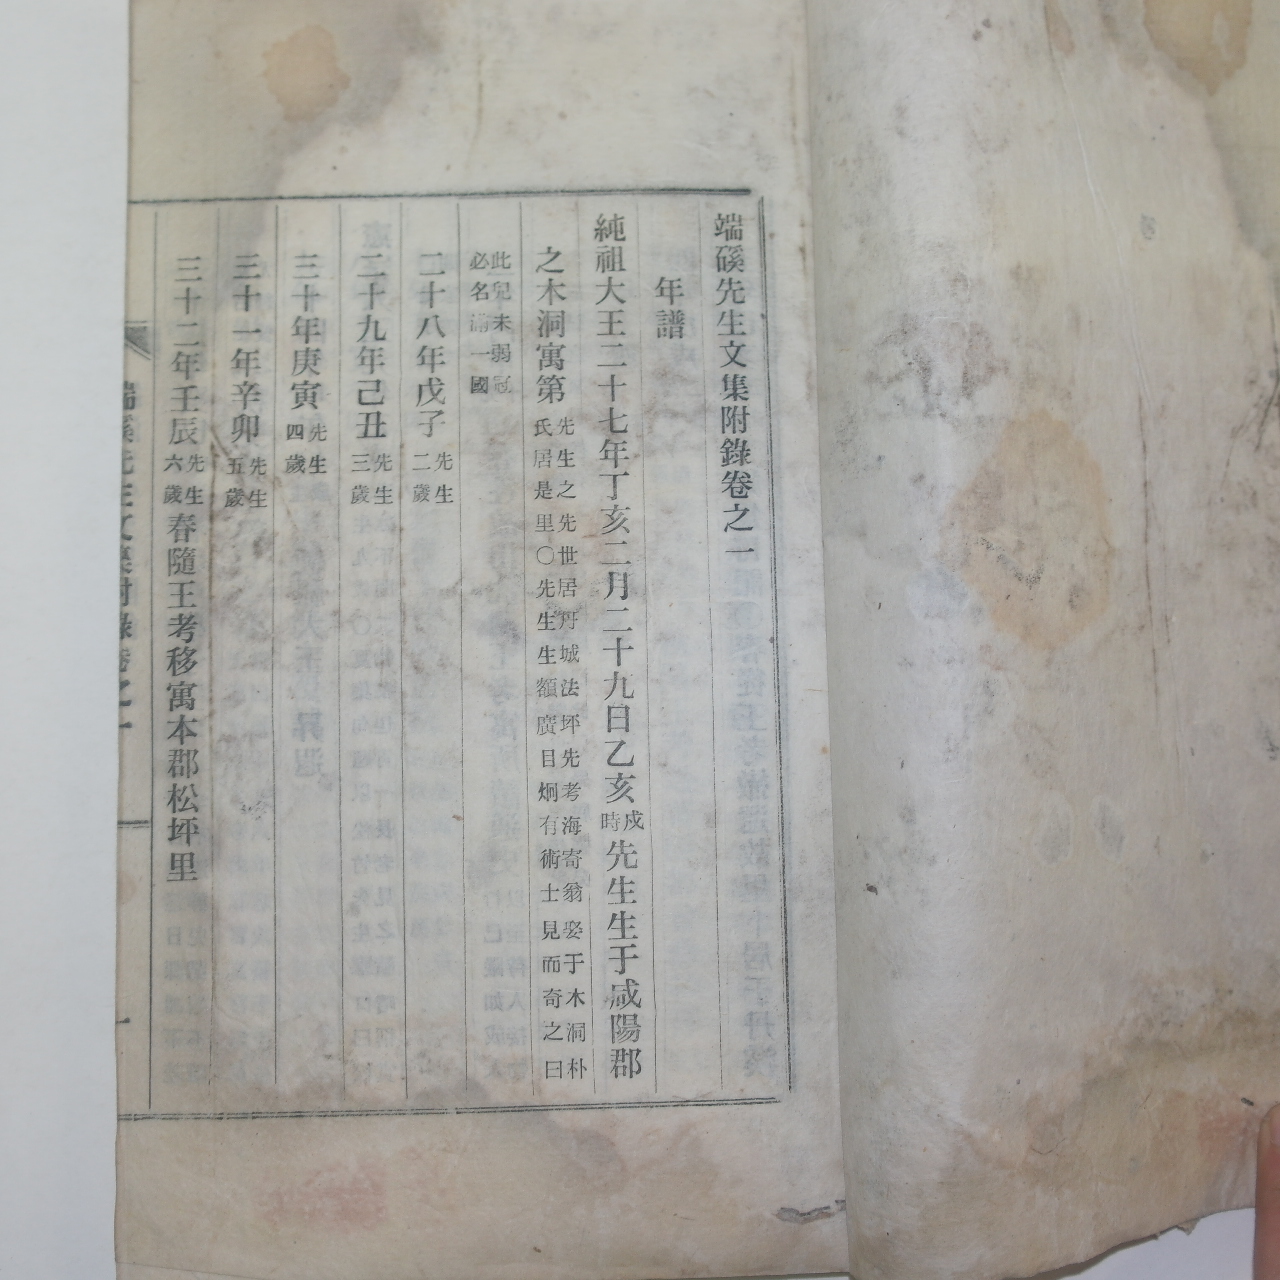 端磎先生文集附錄卷之一
年譜
純祖大王二十七年丁亥二月二十九日乙亥戌時先生生于咸陽郡
之木洞寓第先生之先世居丹城法坪先考海寄翁娶于木洞朴
氏居是里〇先生生額廣目炯有術士見而奇之曰
此兒未弱冠
必名滿一國
二十八年戊子先生二歲
二十九年己丑先生三歲
三十年庚寅先生四歲
三十一年辛卯先生五歲
三十二年壬辰先生六歲春隨王考移寓本郡松坪里
端磎先生文集附錄卷之一
一